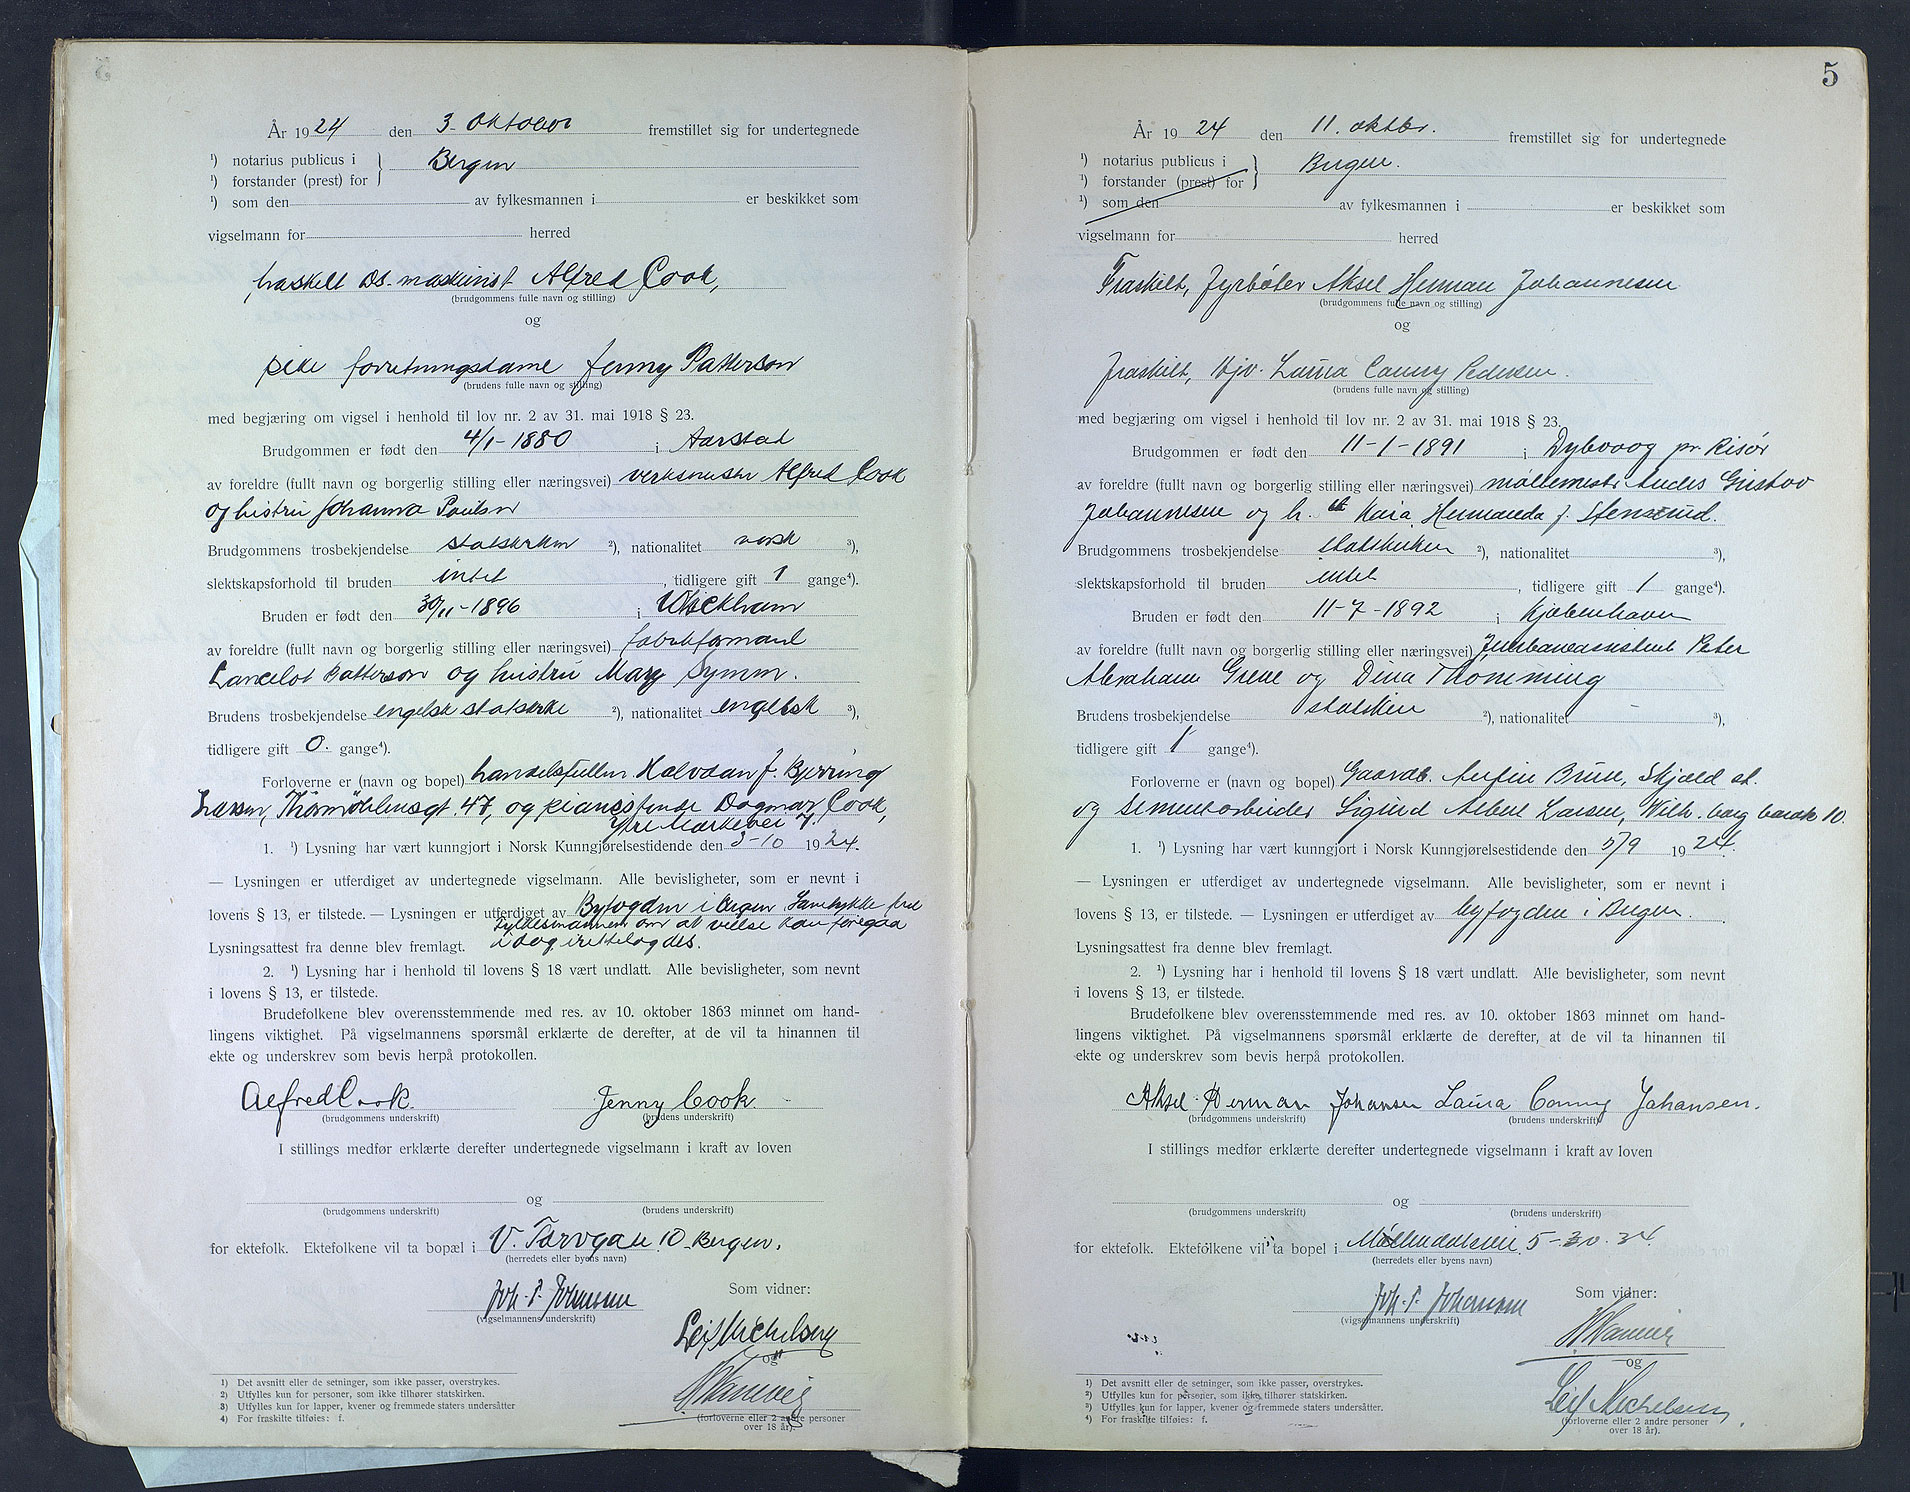 År 1924 den 3. Oktober fremstillet sig for undertegnede
¹) notarius publicus i } Bergen
¹) forstander (prest) for
¹) som den av fylkesmannen i er beskikket som
vigselmann for herred
fraskilt Ds. maskinist Alfred Cook,
(brudgommens fulle navn og stilling)
og
pike forretningsdame Jenny Patterson
(brudens fulle navn og stilling)
med begjæring om vigsel i henhold til lov nr. 2 av 31. mai 1918 § 23.
Brudgommen er født den 4/1-1880 i Aarstad
av foreldre (fullt navn og borgerlig stilling eller næringsvei) verksmester Alfred Cook
og hustru Johanna Paulsen
Brudgommens trosbekjendelse statskirken ²), nationalitet norsk ³),
slektskapsforhold til bruden intet , tidligere gift 1 gange⁴).
Bruden er født den 30/11-1896 i Whickham
av foreldre (fullt navn og borgerlig stilling eller næringsvei) fabrikformand
Lancelot Patterson og hustru Mary Symm.
Brudens trosbekjendelse engelsk statskirke ²), nationalitet engelsk ³),
tidligere gift 0. gange⁴).
Forloverne er (navn og bopel) handelsfullm. Halvdan J. Bjerring
Larsen, Thormøhlensgt. 47, og pianistinde Dagmar Cook,
Ytre Markevei 7.
1. ¹) Lysning har vært kunngjort i Norsk Kunngjørelsestidende den 3-10 1924.
— Lysningen er utferdiget av undertegnede vigselmann. Alle bevisligheter, som er nevnt i
lovens § 13, er tilstede. — Lysningen er utferdiget av Byfogden i Bergen Samtykke fra
Fylkesmannen om at vielse kan foregaa
Lysningsattest fra denne blev fremlagt. i dag irettelagdes.
2. ¹) Lysning har i henhold til lovens § 18 vært undlatt. Alle bevisligheter, som nevnt
i lovens § 13, er tilstede.
Brudefolkene blev overensstemmende med res. av 10. oktober 1863 minnet om hand-
lingens viktighet. På vigselmannens spørsmål erklærte de derefter, at de vil ta hinannen til
ekte og underskrev som bevis herpå protokollen.
Alfred Cook. Jenny Cook
(brudgommens underskrift) (brudens underskrift)
I stillings medfør erklærte derefter undertegnede vigselmann i kraft av loven
og
(brudgommens underskrift) (brudens underskrift)
for ektefolk. Ektefolkene vil ta bopæl i V. Torvgate 10 Bergen.
(herredets eller byens navn)
Joh. P. Johansen Som vidner:
(vigselmannens underskrift)
Leif Michelsen
og
(forloverne eller 2 andre personer
over 18 år).
1) Det avsnitt eller de setninger, som ikke passer, overstrykes.
2) Utfylles kun for personer, som ikke tilhører statskirken.
3) Utfylles kun for lapper, kvener og fremmede staters undersåtter
4) For fraskilte tilføies: f.
5
År 1924 den 11. oktbr. fremstillet sig for undertegnede
¹) notarius publicus i } Bergen.
¹) forstander (prest) for
¹) som den av fylkesmannen i er beskikket som
vigselmann for herred
Fraskilt, fyrbøter Aksel Herman Johannesen
(brudgommens fulle navn og stilling)
og
fraskilt, Hjv. Laura Conny Pedersen.
(brudens fulle navn og stilling)
med begjæring om vigsel i henhold til lov nr. 2 av 31. mai 1918 § 23.
Brudgommen er født den 11-1-1891 i Dybvaag pr. Risør
av foreldre (fullt navn og borgerlig stilling eller næringsvei) møllemestr Anders Gustav
Johannesen og h. Kaia Hermanda f. Stensrud.
Brudgommens trosbekjendelse statskirken ²), nationalitet ³),
slektskapsforhold til bruden intet , tidligere gift 1 gange⁴).
Bruden er født den 11-7-1892 i Kjøbenhavn
av foreldre (fullt navn og borgerlig stilling eller næringsvei) Jernbaneassistent Peter
Abraham Greve og Dina Thomming
Brudens trosbekjendelse statskirken ²), nationalitet ³),
tidligere gift 1 gange⁴).
Forloverne er (navn og bopel) Gaardb. Anfin Bruse, Skjold st.
og sementarbeider Sigurd Albert Larsen, Wilh. berg barak 10.
1. ¹) Lysning har vært kunngjort i Norsk Kunngjørelsestidende den 5/9 1924.
— Lysningen er utferdiget av undertegnede vigselmann. Alle bevisligheter, som er nevnt i
lovens § 13, er tilstede. — Lysningen er utferdiget av byfogden i Bergen.
Lysningsattest fra denne blev fremlagt.
2. ¹) Lysning har i henhold til lovens § 18 vært undlatt. Alle bevisligheter, som nevnt
i lovens § 13, er tilstede.
Brudefolkene blev overensstemmende med res. av 10. oktober 1863 minnet om hand-
lingens viktighet. På vigselmannens spørsmål erklærte de derefter, at de vil ta hinannen til
ekte og underskrev som bevis herpå protokollen.
Aksel Herman Johansen Laura Conny Johansen.
(brudgommens underskrift) (brudens underskrift)
I stillings medfør erklærte derefter undertegnede vigselmann i kraft av loven
og
(brudgommens underskrift) (brudens underskrift)
for ektefolk. Ektefolkene vil ta bopel i Møllendalsvei
(herredets eller byens navn)
Joh. P. Johansen Som vidner:
(vigselmannens underskrift)
og
Leif Michelsen
(forloverne eller 2 andre personer
over 18 år).
1) Det avsnitt eller de setninger, som ikke passer, overstrykes.
2) Utfylles kun for personer, som ikke tilhører statskirken.
3) Utfylles kun for lapper, kvener og fremmede staters undersåtter.
4) For fraskilte tilføies: f.